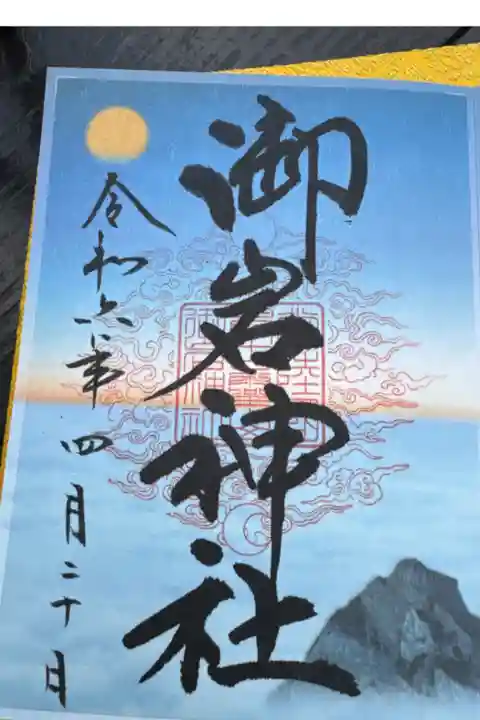 御岩神社
令和六年四月二十日